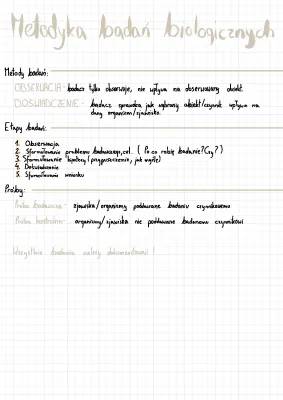 Metodyka badań biologicznych
Metody badań:
OBSERWACJA - badacz tylko obserwuje, nie wpływa na obserwowany obiekt.
DOŚWIADCZENIE - badacz sprawdza, jak wybrany obiekt/czynnik wpływa na
dany organizm/zjawisko.
Etapy badań:
1. Obserwacja
2. Sformułowanie problemu badawczego, cel. ( Po co robię badanie? Czy? )
3. Sformułowanie hipotezy ( przypuszczenie, jak wyjdzie)
4. Doświadczenie
5. Sformułowanie wniosku
Próby:
Próba badawcza - zjawiska/organizmy poddawane badaniu czynnikowemu
Próba kontrolna - organizmy/zjawiska nie poddawane badanemu czynnikowi
Wszystkie badania należy dokumentować !